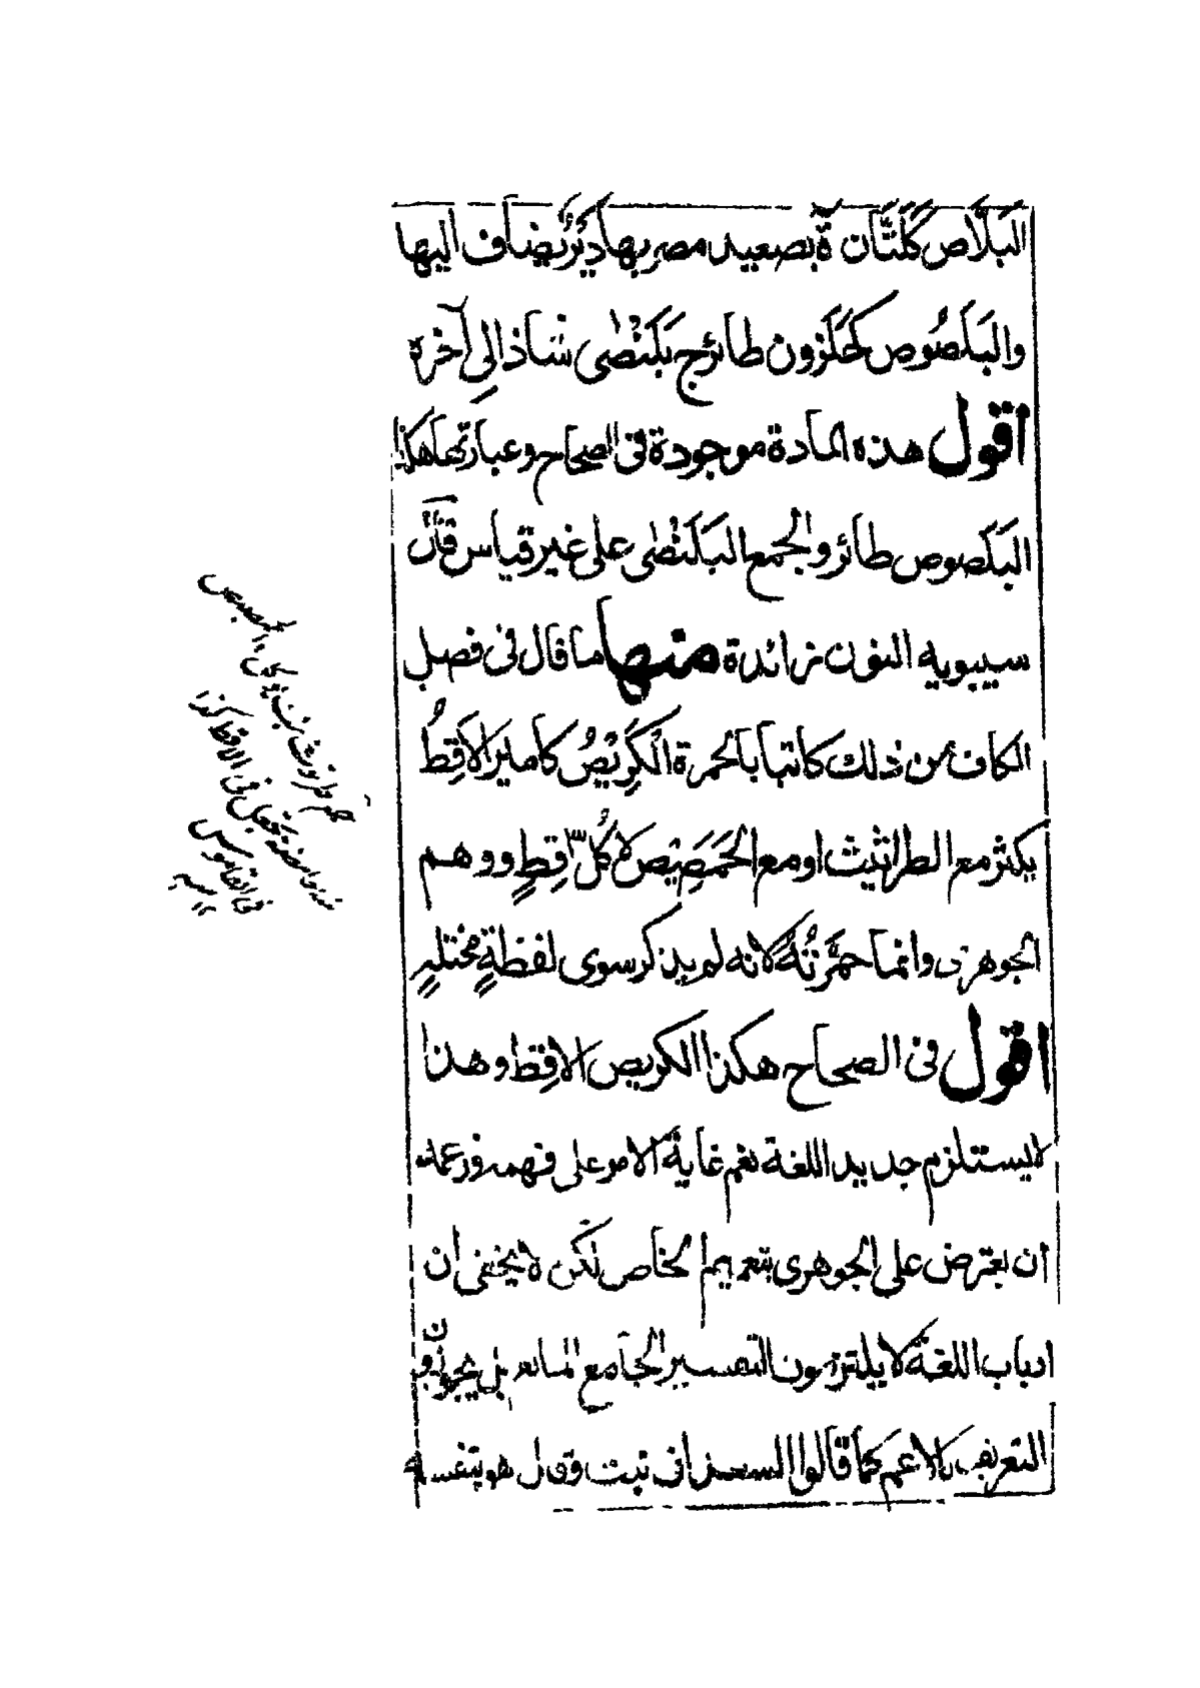 البَلَّاص كَكَتَّان ة بصعيد مصر بها دَيْرٌ يُضاف اليها
والبَلَصُوص كَحَلَزون طائر ج بَلَنْصٰى شاذ الى آخره
اقول هذه المادة موجودة فى الصحاح وعبارتها هكذا
البَلَصوص طائر والجمع البَلَنْصٰى على غير قياس قال
سيبويه النون زائدة منها ما قال فى فصل
الكاف من ذلك كاتبا بالحمرة الكَرِيْصُ كامير الاَقِطُ
يكنز مع الطراثيث او مع الحَمَصِيْص لا كُلّ اَقِطٍ ووهم
الجوهرى وانما حَمَّرْتُهُ لانه لم يذكر سوى لفظةٍ مختلةٍ
اقول فى الصحاح هكذا الكريص الاقِط وهذا
لا يستلزم جديد اللغة نعم غاية الامر على فهمه وزعمه
ان يعترض على الجوهرى بتعميم الخاص لكن لا يخفى ان
ارباب اللغة لا يلتزمون التفسير الجامع المانع بل يجوزون
التعريف بالاعم كما قالوا السعدانى نبت وقال هو بنفسه